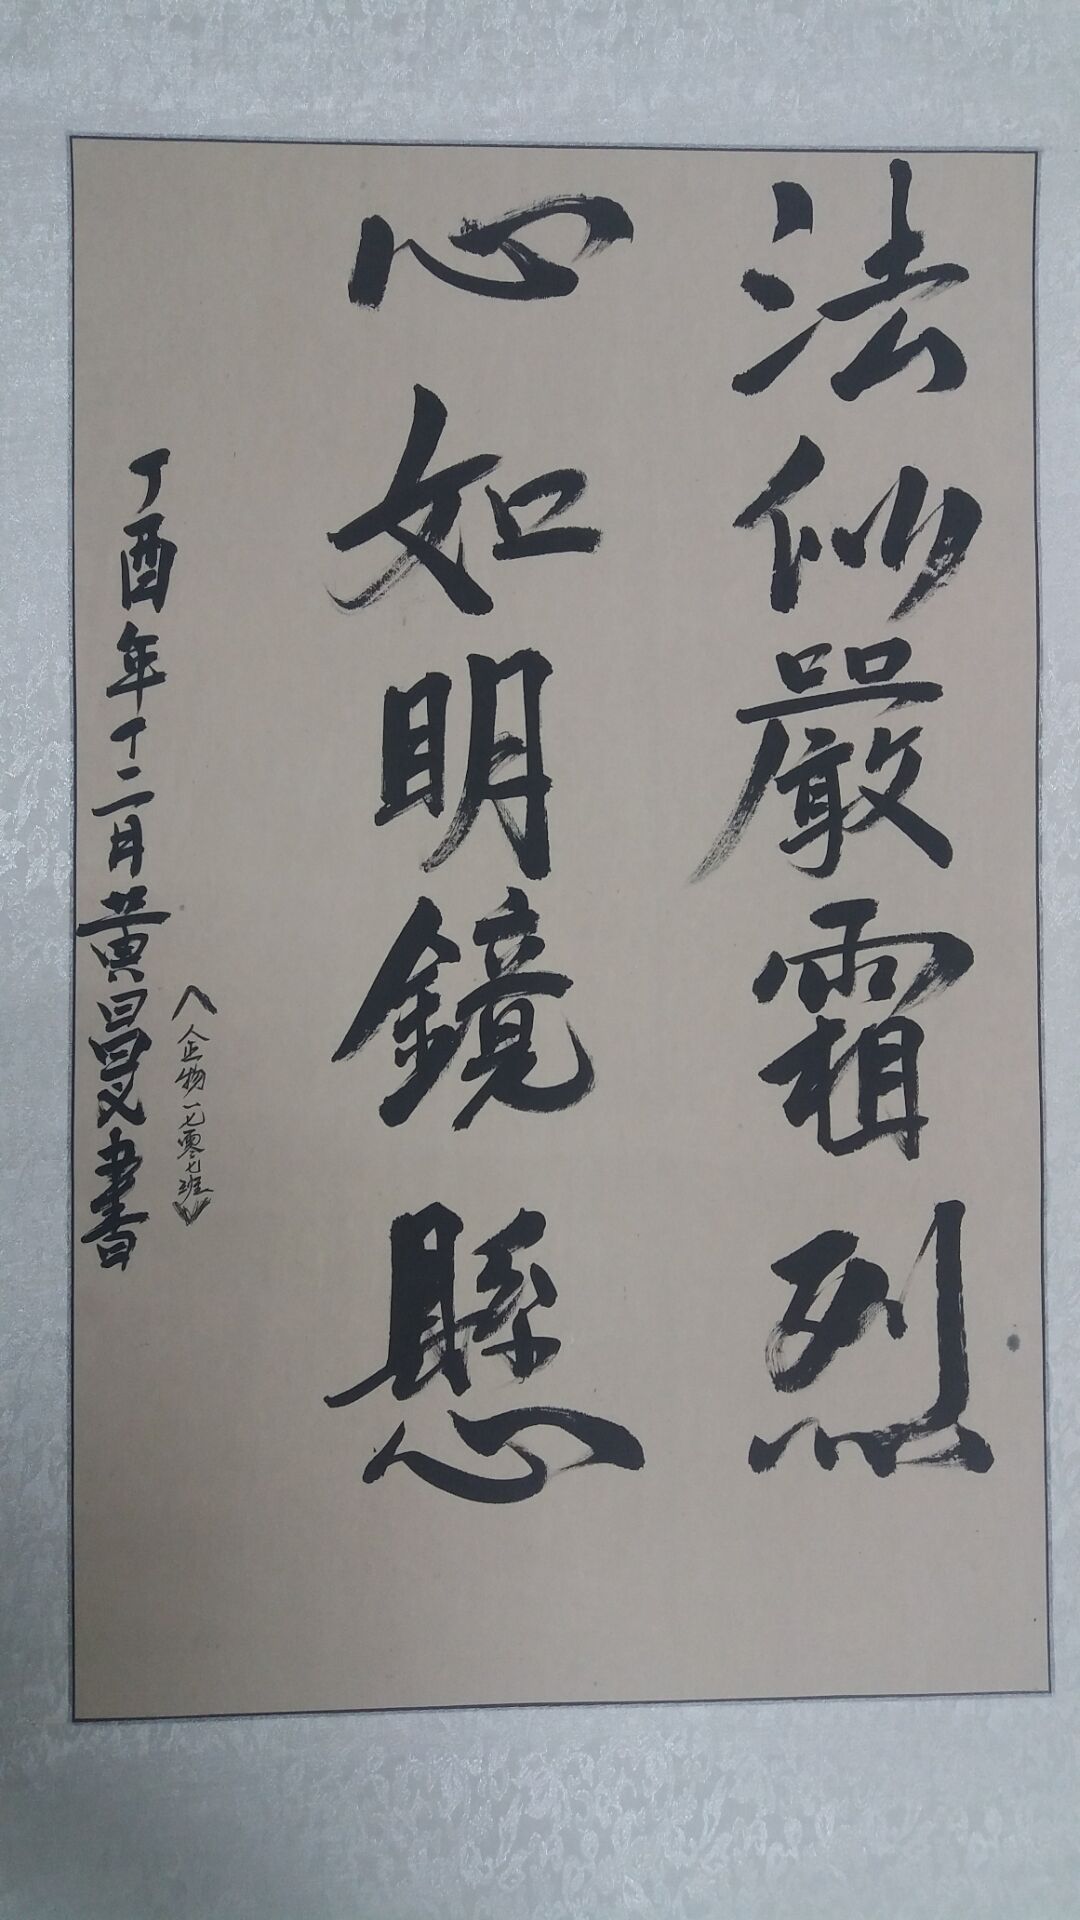 法似嚴霜烈
心如明鏡懸
《企物一七零七班》
丁酉年十二月黄昌义書